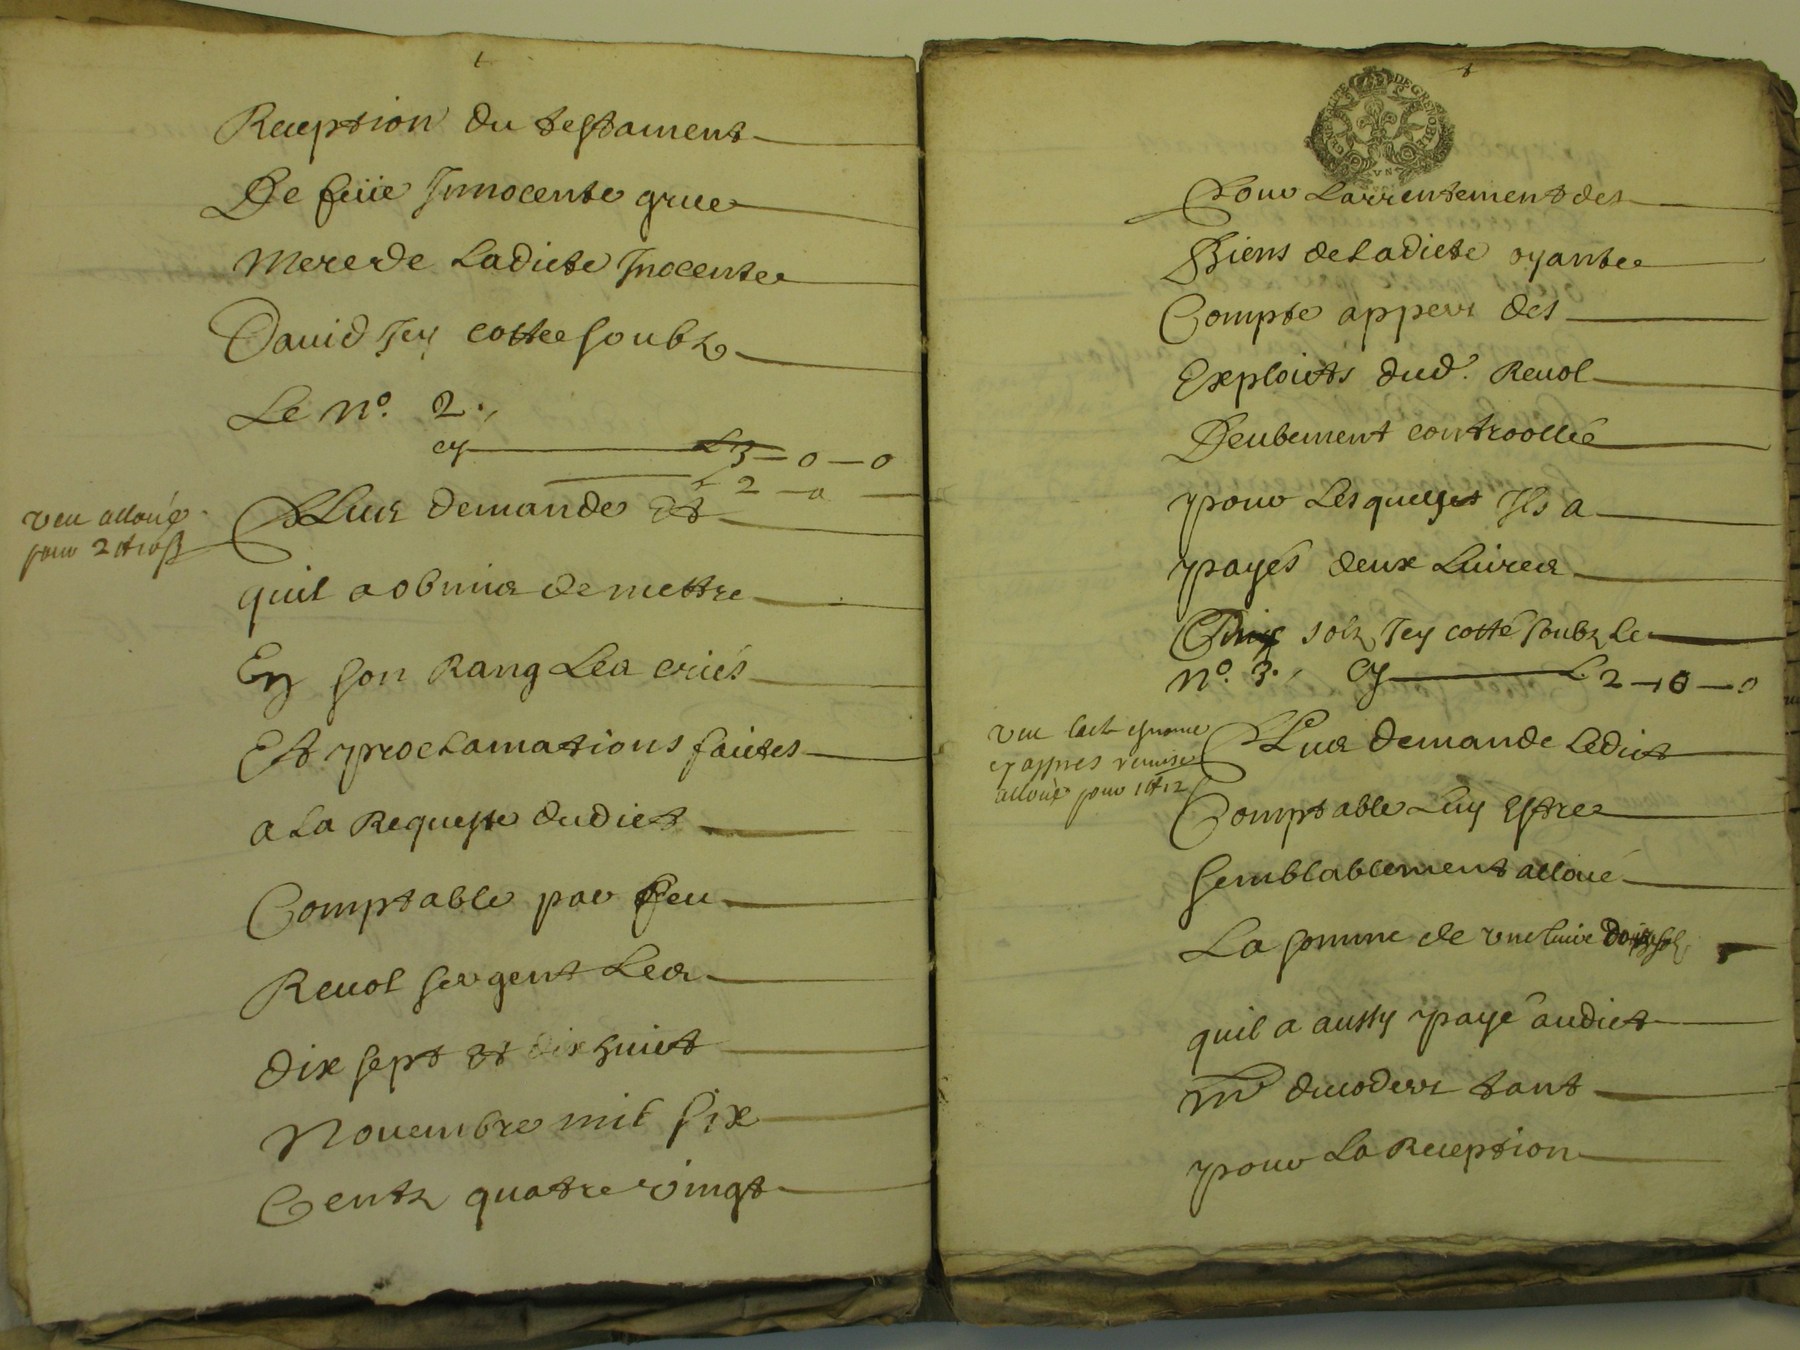 Reception du testament
De feüe Innocente grue
Mere de Ladicte Inocente
Dauid Icy cottee soubz
Le n°. 2.,
cy L 3 - 0 - 0
L 2 - 0 -
veu alloué
pour 2 # 10 ß
Plus demande Et
quil a obmis de mettre
En son Rang Les criés
Et proclamations faictes
a La Requeste dudict
Comptable par feu
Reuol sergent Les
dix sept et dix huict
Nouembre mil six
Centz quatre vingt
GENERALITE DE GRENOBLE
VN
Pour Larrentement des
Biens de Ladicte oyante
Compte appert des
Exploicts dud. Reuol
Deubement controollé
pour Lesquels Ils a
payés deux Liures
solz Icy cotté soubz Le
n°. 3., Cy L 2 - 10 - 0
veu
cy appres
alloué pour 1 # 12
Plus demande Ledict
Comptable Luy Estre
semblablement alloué
La somme de vne liure solz
quil a aussy payé audict
m.e ducoderc tant
pour La Reception